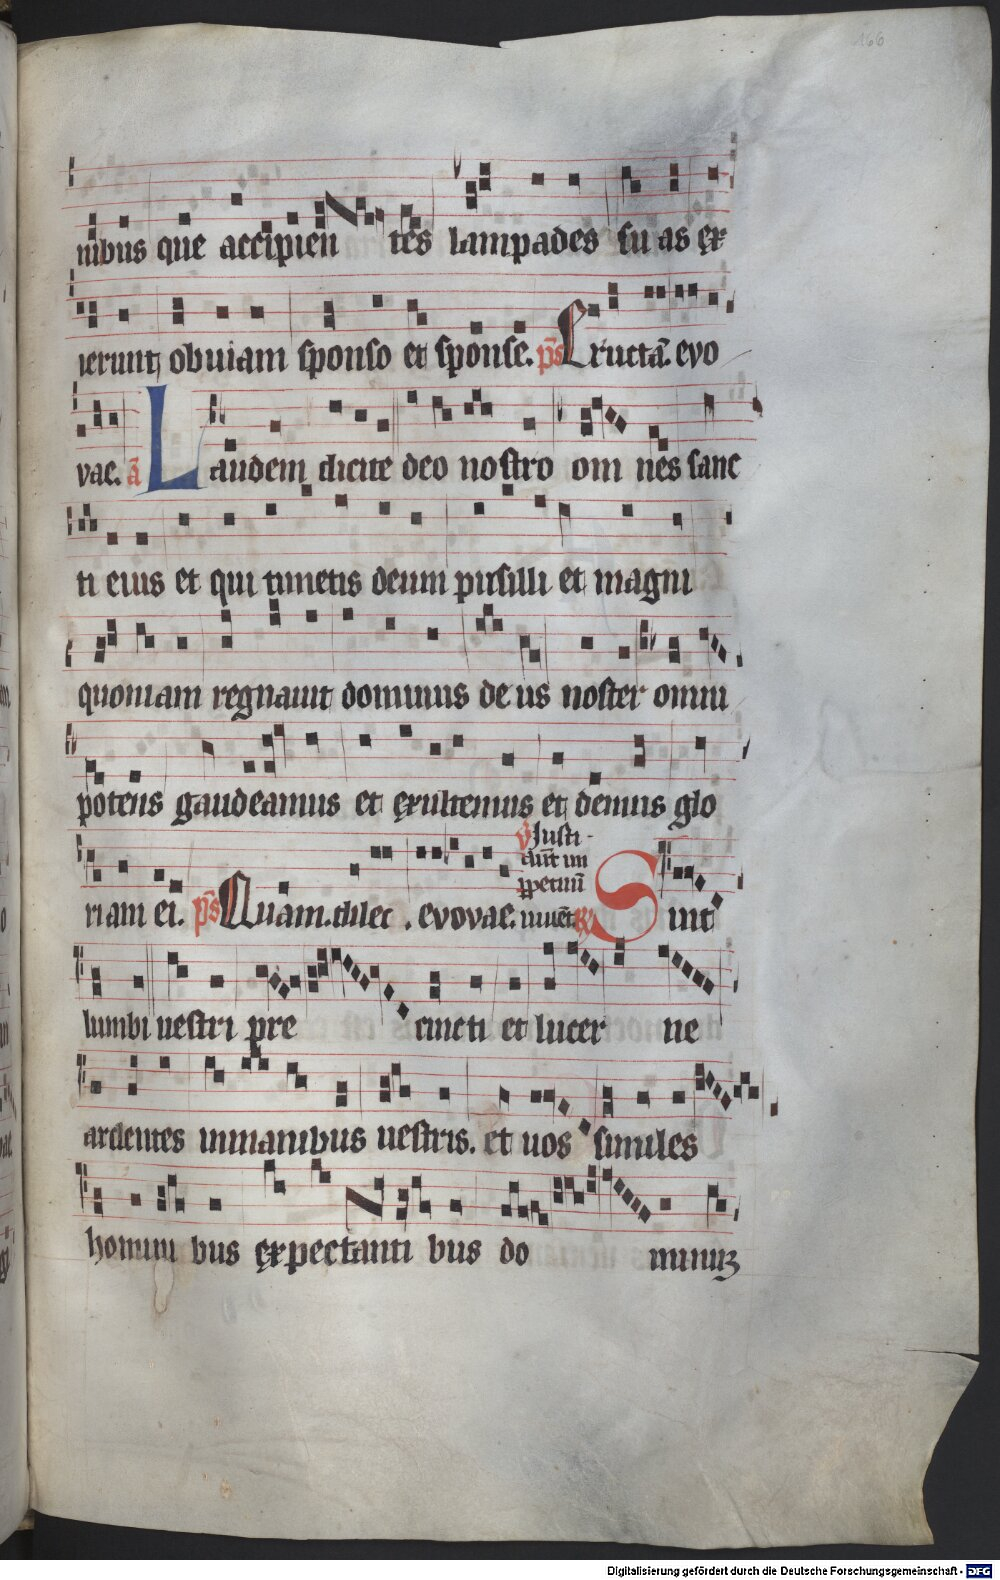 166
nibus que accipien tes lampades su as ex
ierunt obuiam sponso et sponse. ps Eructā. evo
vae. ā Laudem dicite deo nostro om nes sanc
ti eius et qui timetis deum pusilli et magni
quoniam regnauit dominus de us noster omni
potens gaudeamus et exultemus et demus glo
riam ei. ps Quam.dilec . evovae. v Iusti aūt in ppetuū uiuēt R Sint
lumbi uestri pre cincti et lucer ne
ardentes inmanibus uestris. et uos similes
homini bus expectanti bus do minuz
Digitalisierung gefördert durch die Deutsche Forschungsgemeinschaft - DFG